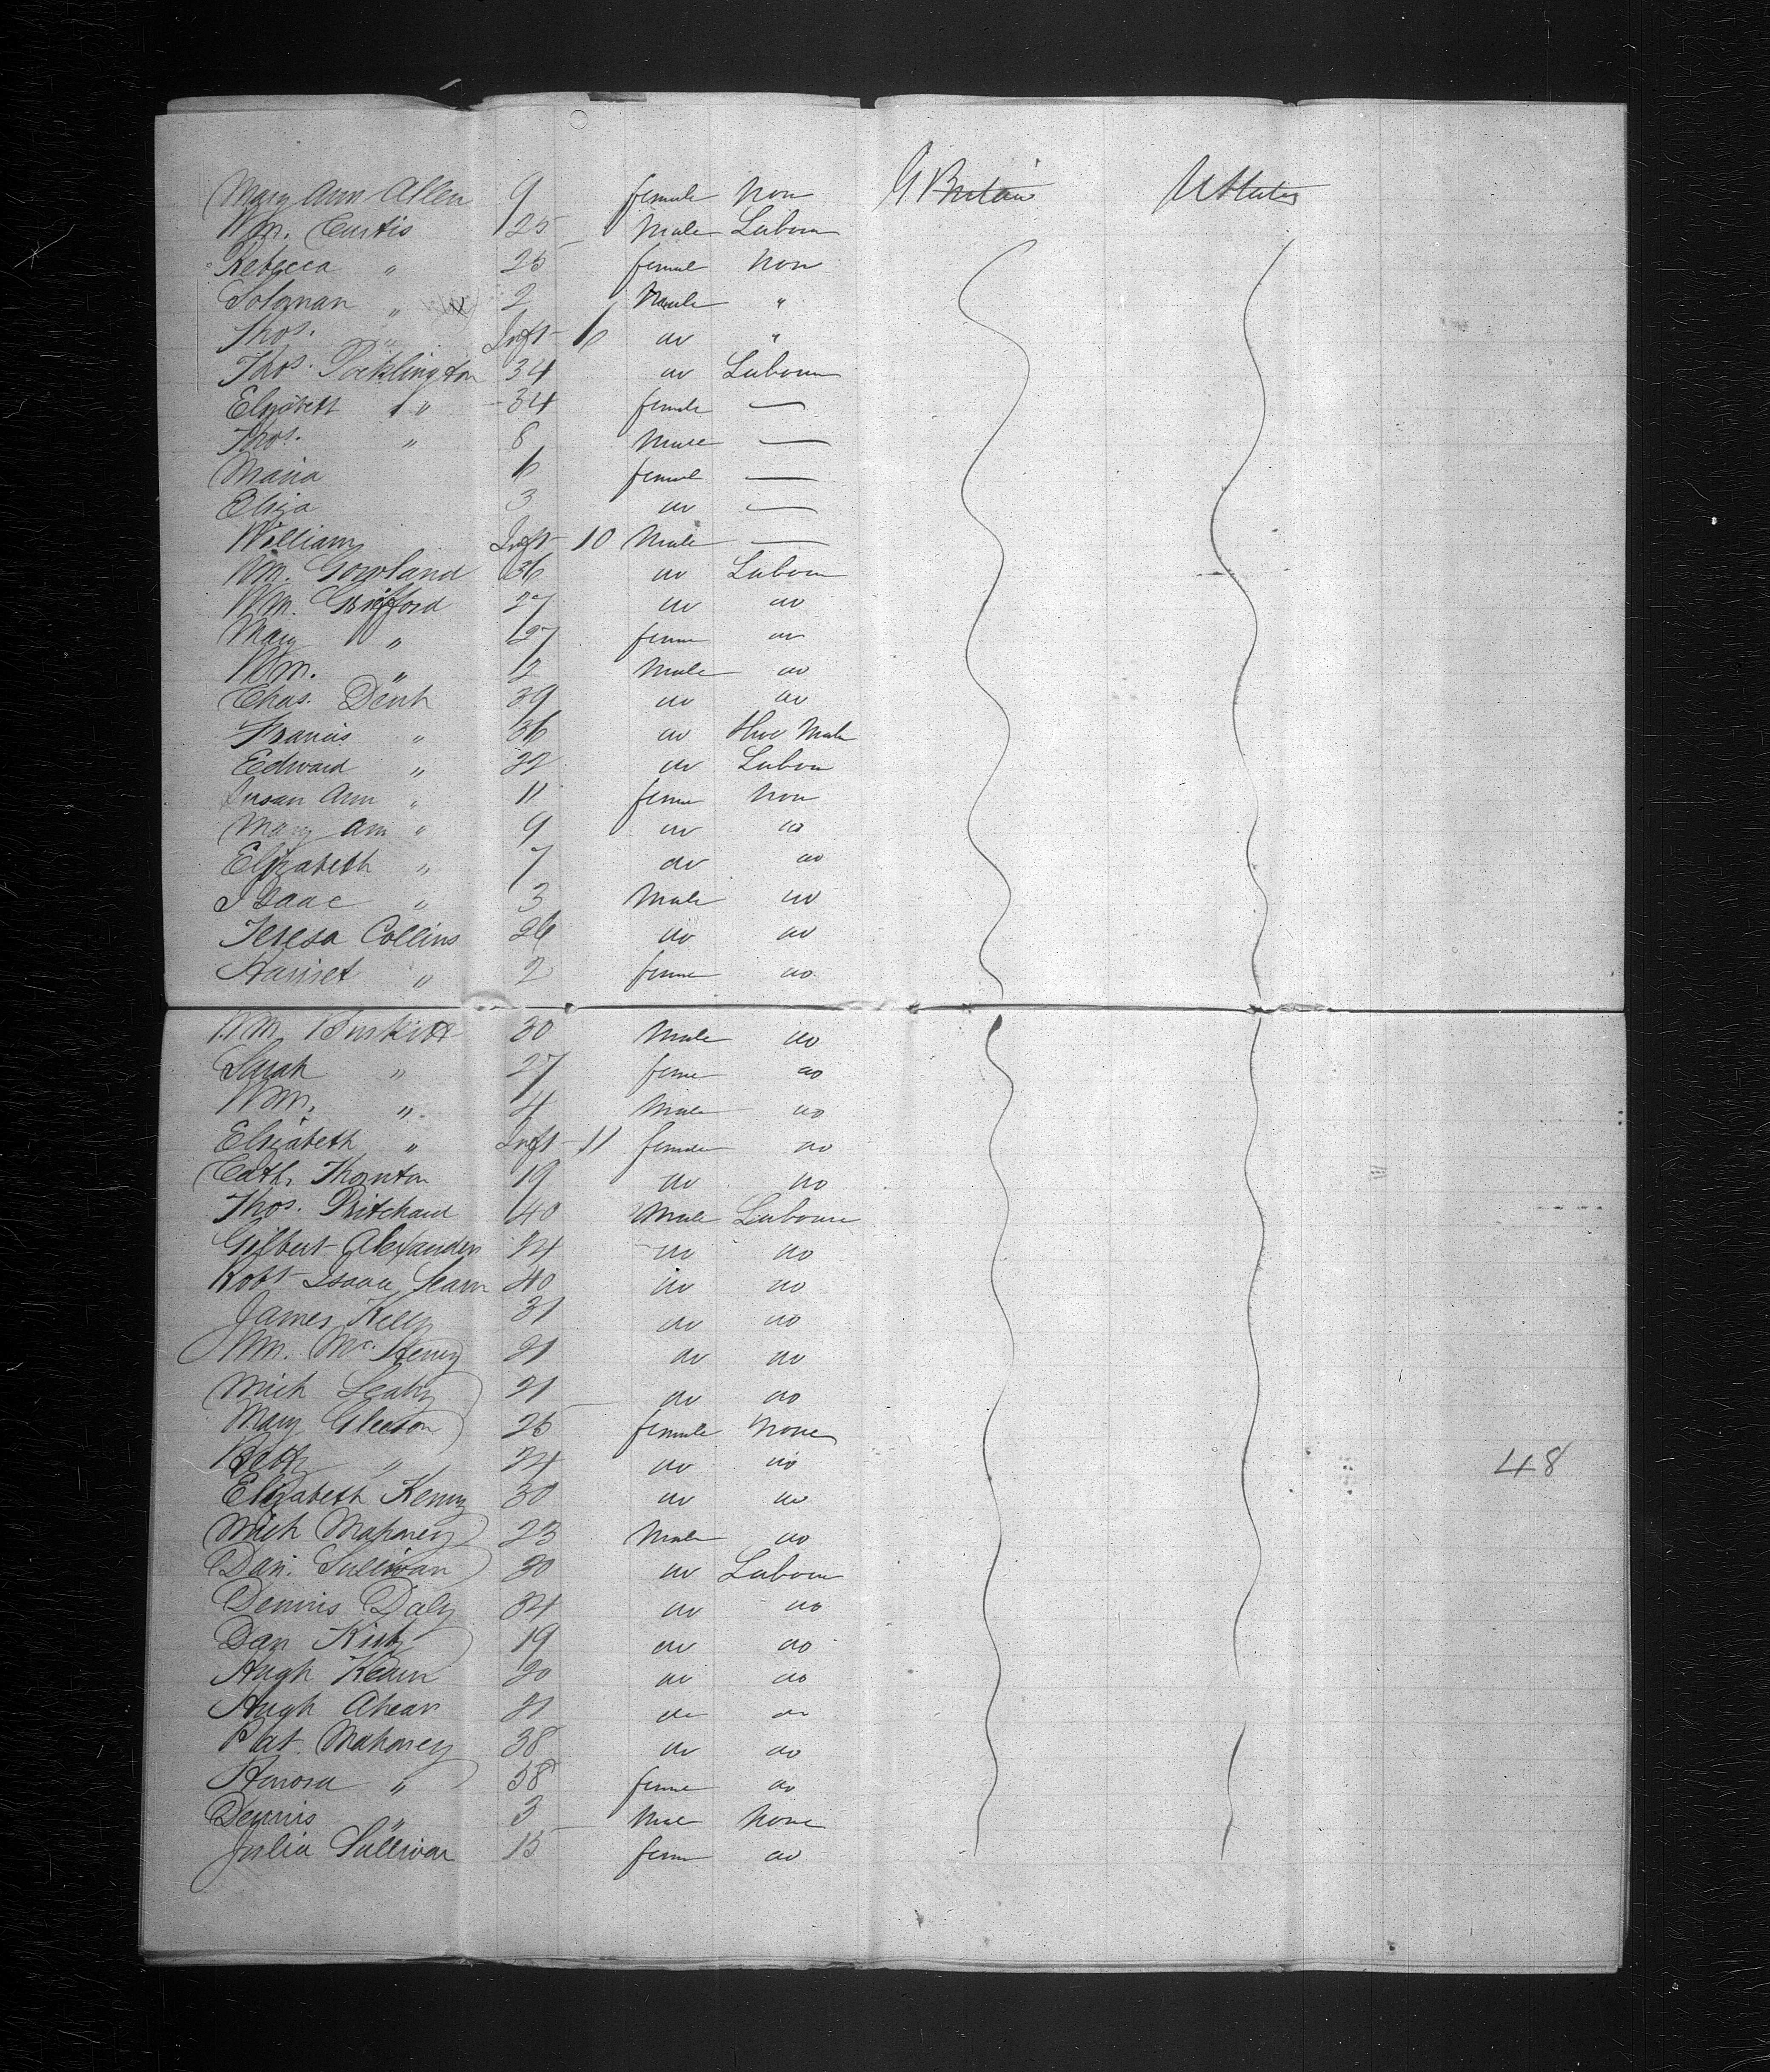 Mary Ann Allen 9 female Non G Britain UStates
Wm. Curtis 25 Male Labour
Rebecca " 25 female Non
Soloman " 2 Male "
Thos. " Inft 6 do "
Thos. Pocklington 34 do Labour
Elizabeth " 34 female —
Thos. " 8 Male —
Maria 6 female —
Eliza 3 do —
William Inft 10 Male —
Wm. Gowland 36 do Labour
Wm. Grifford 27 do do
Mary " 27 feme do
Wm. " 2 Male do
Chas. Dent 39 do do
Francis " 36 do
Edward " 32 do Labour
Susan Ann " 11 feme Non
Mary Ann " 9 do do
Elizabeth " 7 do do
Isaac " 3 Male do
Teresa Collins 26 do do
Harriet " 2 feme do
Wm. Burkitt 30 Male do
Sarah " 27 feme do
Wm. " 4 Male do
Elizabeth " Inft 11 female do
Cath. Thornton 19 do do
Thos. Pritchard 40 Male Labour
Gilbert Alexander 24 do do
Robt Isaac 40 do do
James Kelly 31 do do
Wm. Mc. Henry 21 do do
Mich Leahy 21 do do
Mary Gleeson 25 female None
" 24 do do 48
Elizabeth Kenny 30 do do
Mich Mahoney 23 Male do
Dan. Sullivan 30 do Labour
Dennis Daly 34 do do
Dan 19 do do
Hugh 20 do do
Hugh Ahear 21 do do
Pat. Mahoney 38 do do
" 38 feme do
Dennis " 3 Male None
Julia Sullivan 15 feme do